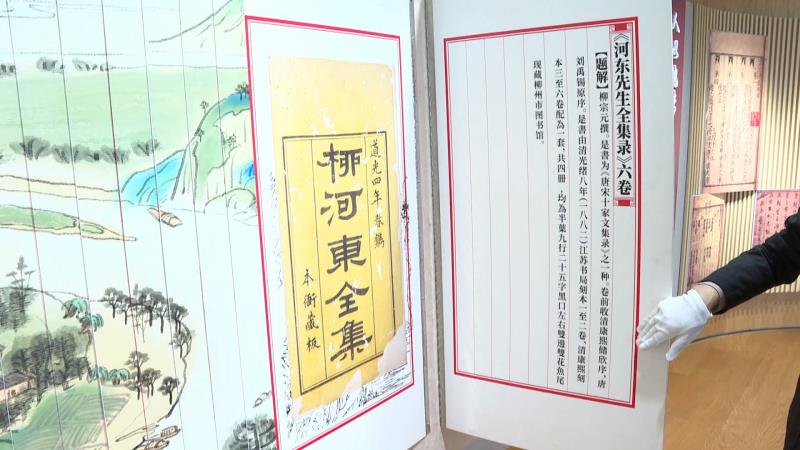 《河东先生全集录》六卷
【题解】柳宗元撰。是书为《唐宋十家文集录》之一种。卷前收清康熙储欣序，唐
刘禹锡原序。是書由清光绪八年(一八八二)江苏书局刻本一至二卷、清康熙刻
本三至六卷配為一套，共四册，均為半葉九行二十五字黑口左右雙邊雙花魚尾
现藏柳州市图书馆。
道光四年春鐫
柳河東全集
本衙藏板